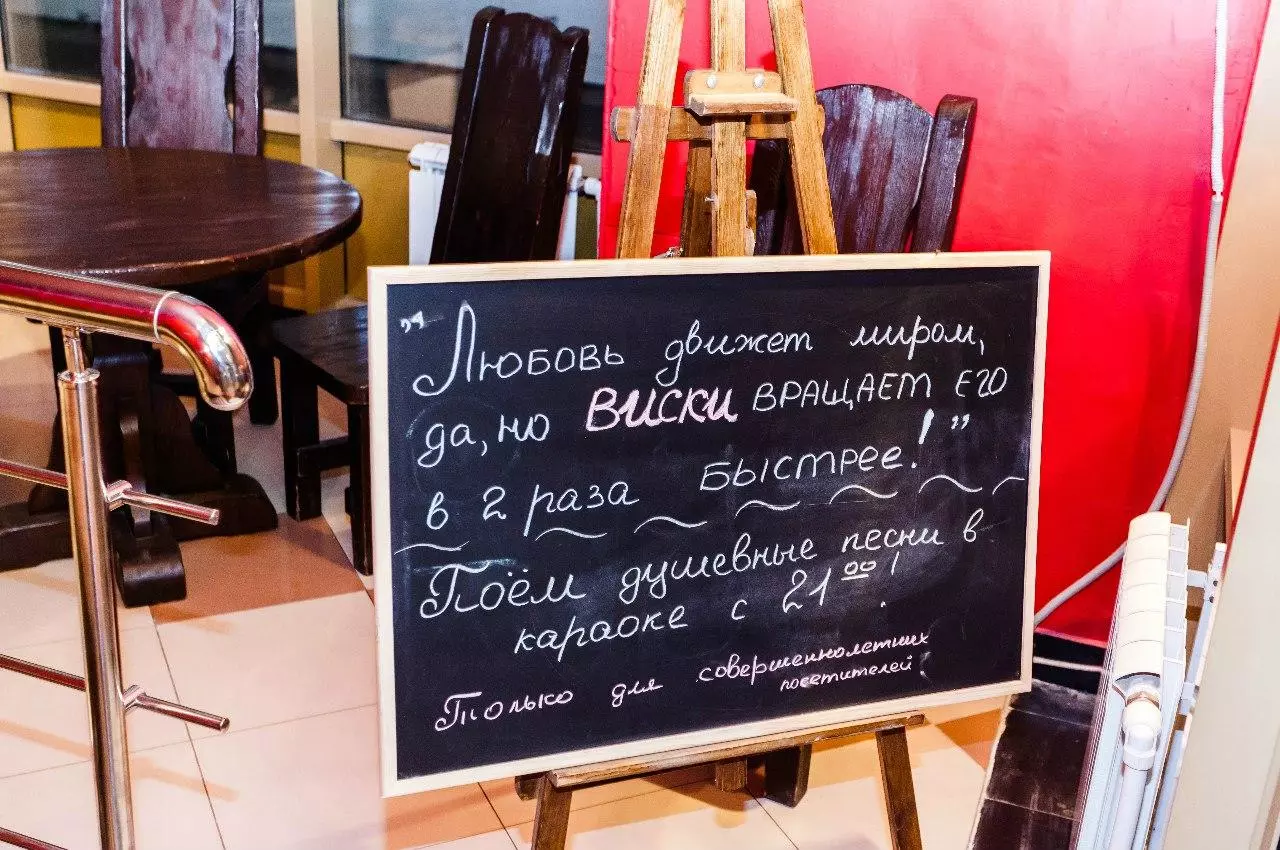 "Любовь движет миром,
да, но ВИСКИ ВРАЩАЕТ ЕГО
в 2 раза БЫСТРЕЕ!"
Поём душевные песни в
караоке с 21⁰⁰!
Только для совершеннолетних
посетителей.